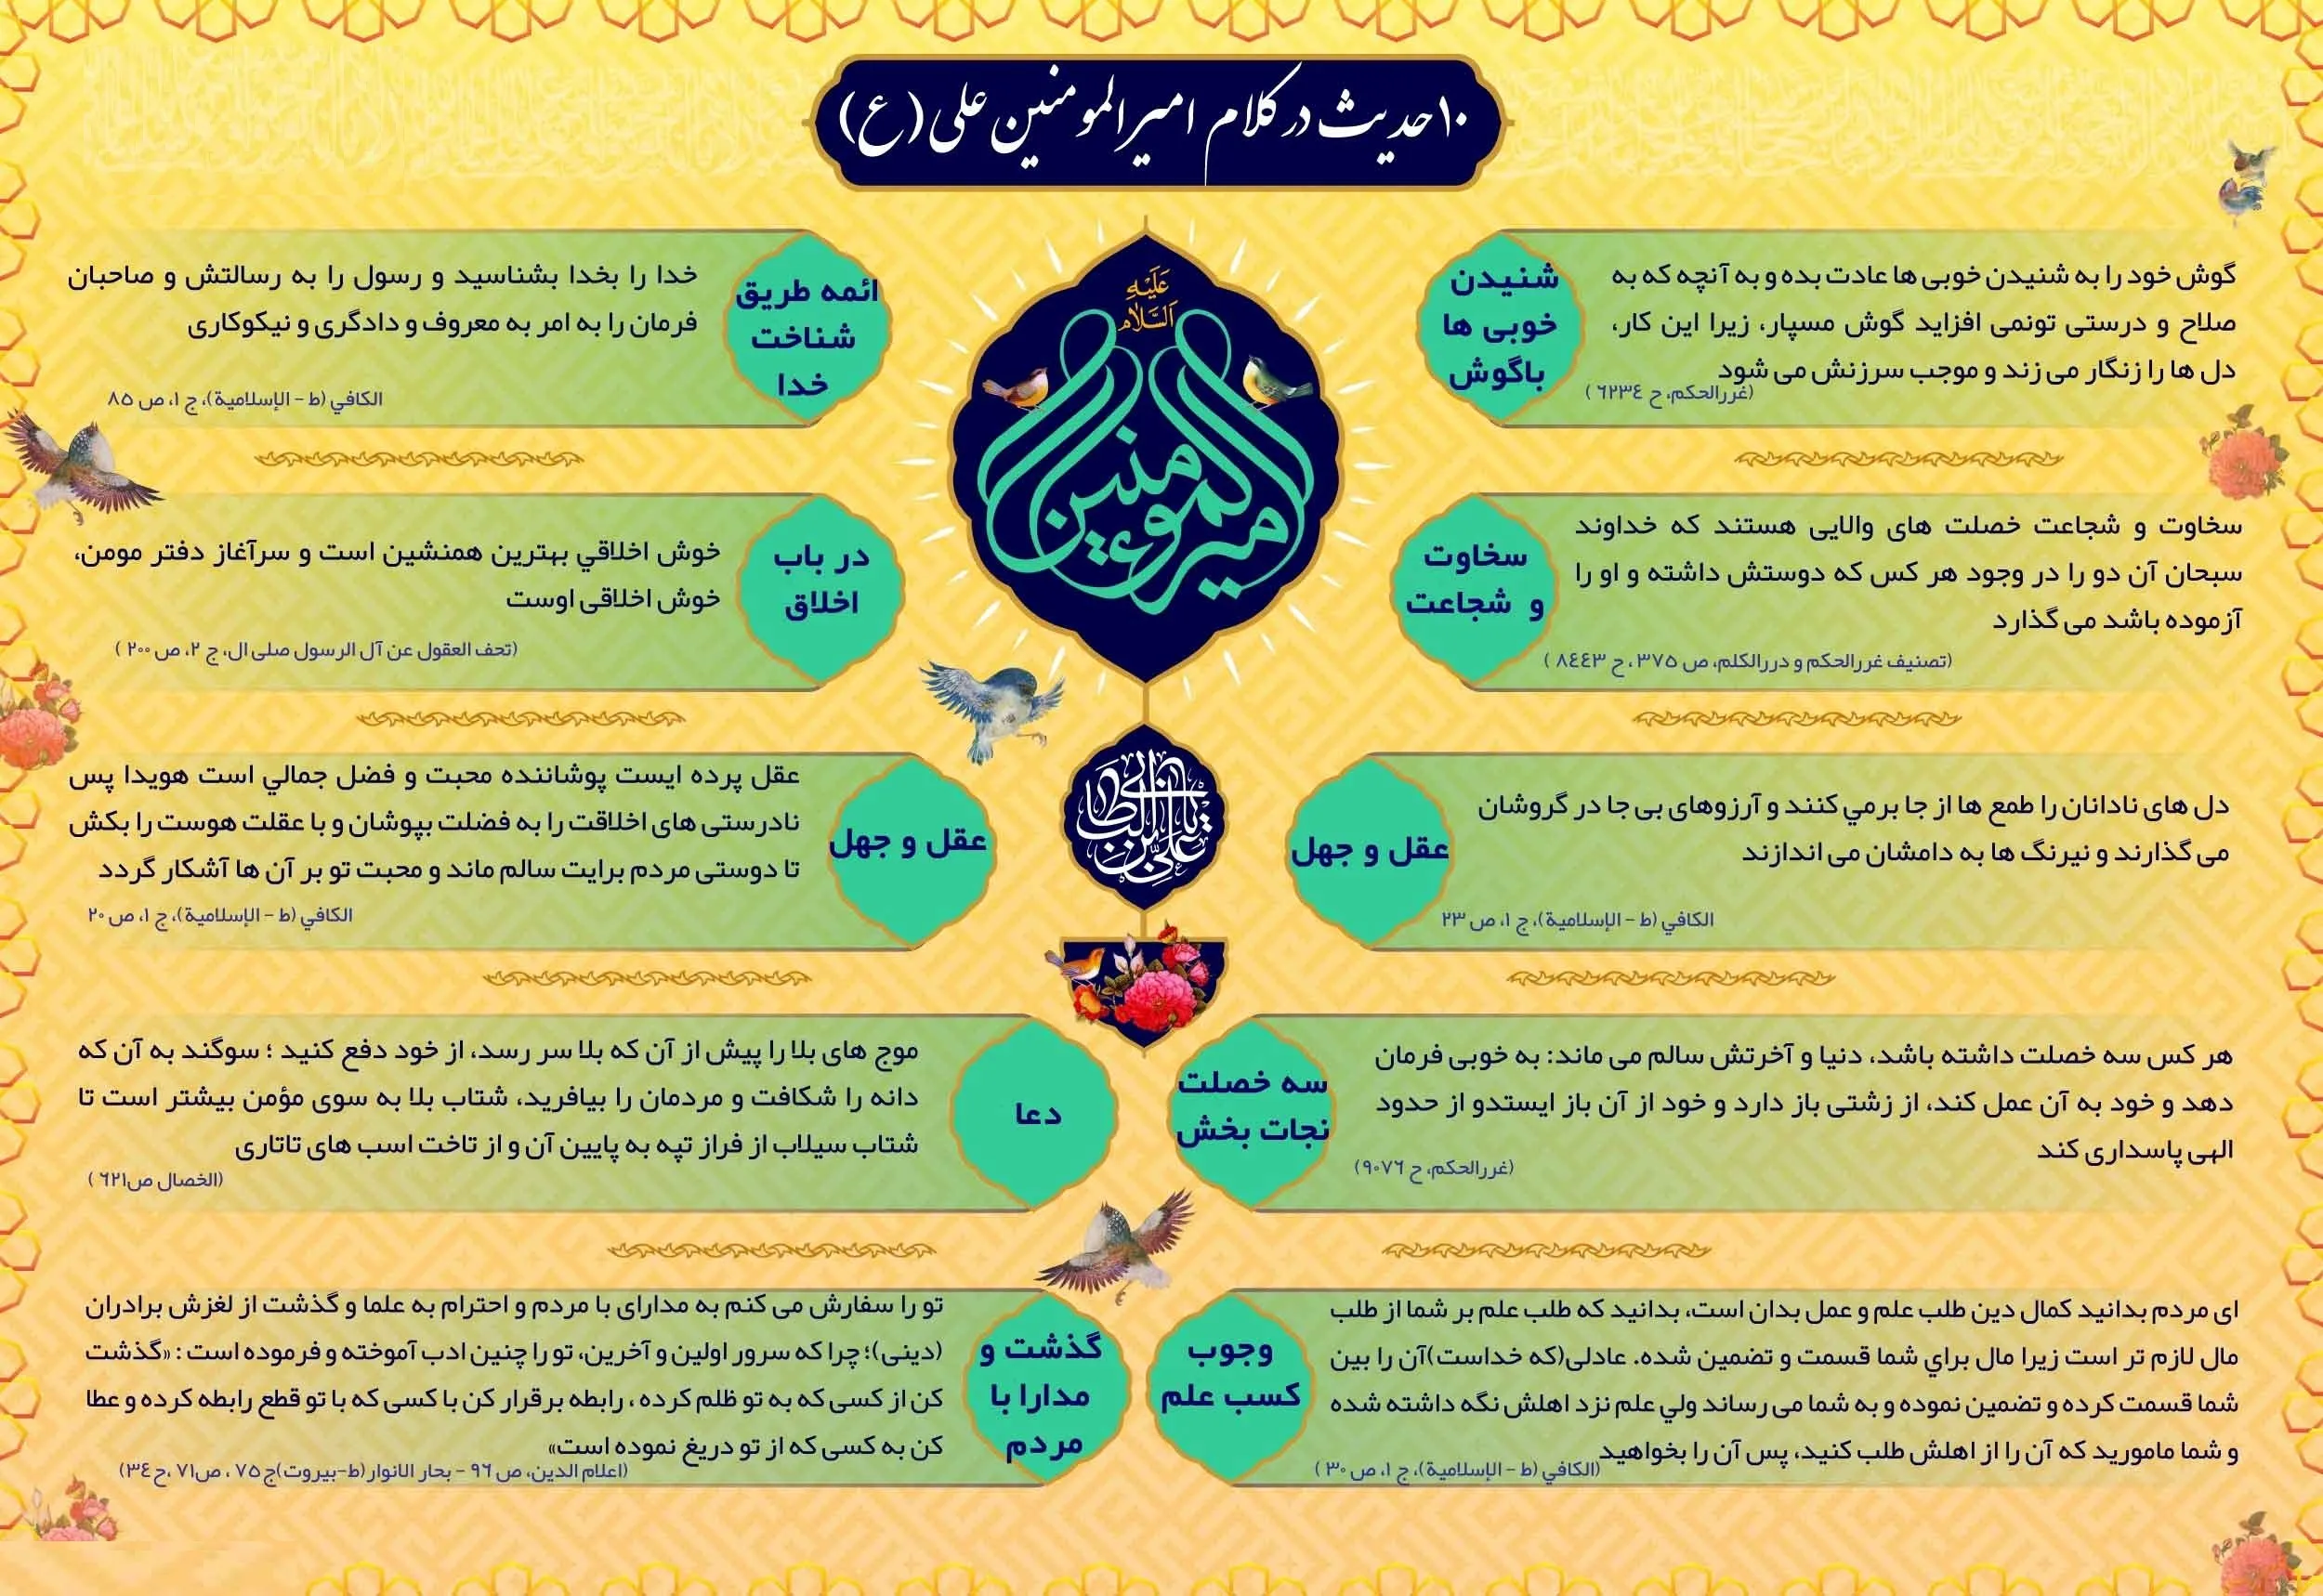 ۱۰ حدیث در کلام امیرالمومنین علی (ع)
عَلَیْهِ
اَلسَّلاٰم
امیرالموءمنین
علی بن ابی طالب
شنیدن
خوبی ها
باگوش
گوش خود را به شنیدن خوبی ها عادت بده و به آنچه که به
صلاح و درستی تونمی افزاید گوش مسپار، زیرا این کار،
دل ها را زنگار می زند و موجب سرزنش می شود
(غررالحکم، ح ۶۲۳۴ )
سخاوت
و شجاعت
سخاوت و شجاعت خصلت های والایی هستند که خداوند
سبحان آن دو را در وجود هر کس که دوستش داشته و او را
آزموده باشد می گذارد
(تصنیف غررالحکم و دررالکلم، ص ۳۷۵ ، ح ۸۴۴۳ )
عقل و جهل
دل های نادانان را طمع ها از جا برمي کنند و آرزوهای بی جا در گروشان
می گذارند و نیرنگ ها به دامشان می اندازند
الکافي (ط – الإسلامیة)، ج ۱، ص ۲۳
سه خصلت
نجات بخش
هر کس سه خصلت داشته باشد، دنیا و آخرتش سالم می ماند: به خوبی فرمان
دهد و خود به آن عمل کند، از زشتی باز دارد و خود از آن باز ایستدو از حدود
الهی پاسداری کند
(غررالحکم، ح ۹۰۷۶)
وجوب
کسب علم
ای مردم بدانید کمال دین طلب علم و عمل بدان است، بدانید که طلب علم بر شما از طلب
مال لازم تر است زیرا مال براي شما قسمت و تضمین شده. عادلی(که خداست)آن را بین
شما قسمت کرده و تضمین نموده و به شما می رساند ولي علم نزد اهلش نگه داشته شده
و شما مامورید که آن را از اهلش طلب کنید، پس آن را بخواهید
(الکافي (ط – الإسلامیة)، ج ۱، ص ۳۰ )
ائمه طریق
شناخت
خدا
خدا را بخدا بشناسید و رسول را به رسالتش و صاحبان
فرمان را به امر به معروف و دادگری و نیکوکاری
الکافي (ط – الإسلامیة)، ج ۱، ص ۸۵
در باب
اخلاق
خوش اخلاقي بهترین همنشین است و سرآغاز دفتر مومن،
خوش اخلاقی اوست
(تحف العقول عن آل الرسول صلی ال، ج ۲، ص ۲۰۰ )
عقل و جهل
عقل پرده ایست پوشاننده محبت و فضل جمالي است هویدا پس
نادرستی های اخلاقت را به فضلت بپوشان و با عقلت هوست را بکش
تا دوستی مردم برایت سالم ماند و محبت تو بر آن ها آشکار گردد
الکافي (ط – الإسلامیة)، ج ۱، ص ۲۰
دعا
موج های بلا را پیش از آن که بلا سر رسد، از خود دفع کنید ؛ سوگند به آن که
دانه را شکافت و مردمان را بیافرید، شتاب بلا به سوی مؤمن بیشتر است تا
شتاب سیلاب از فراز تپه به پایین آن و از تاخت اسب های تاتاری
(الخصال ص۶۲۱ )
گذشت و
مدارا با
مردم
تو را سفارش می کنم به مدارای با مردم و احترام به علما و گذشت از لغزش برادران
(دینی)؛ چرا که سرور اولین و آخرین، تو را چنین ادب آموخته و فرموده است : «گذشت
کن از کسی که به تو ظلم کرده ، رابطه برقرار کن با کسی که با تو قطع رابطه کرده و عطا
کن به کسی که از تو دریغ نموده است»
(اعلام الدین، ص ۹۶ – بحار الانوار(ط-بیروت)ج۷۵ ، ص۷۱ ،ح۳۴)